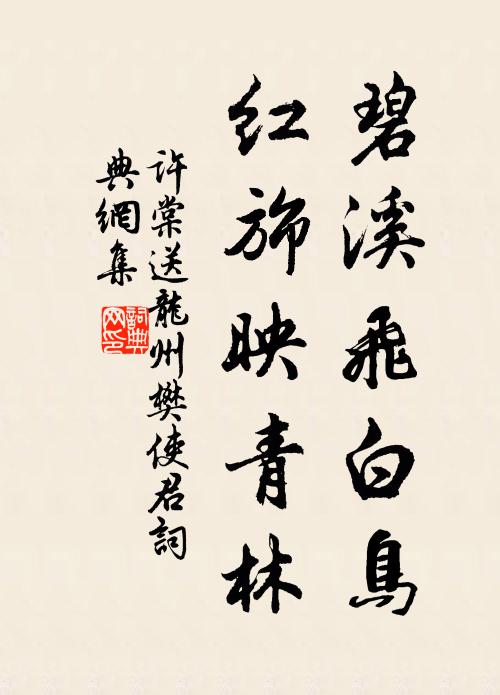 碧溪飛白鳥
紅旆映青林
許棠送龍州樊使君詞
典網集
詞典
网印